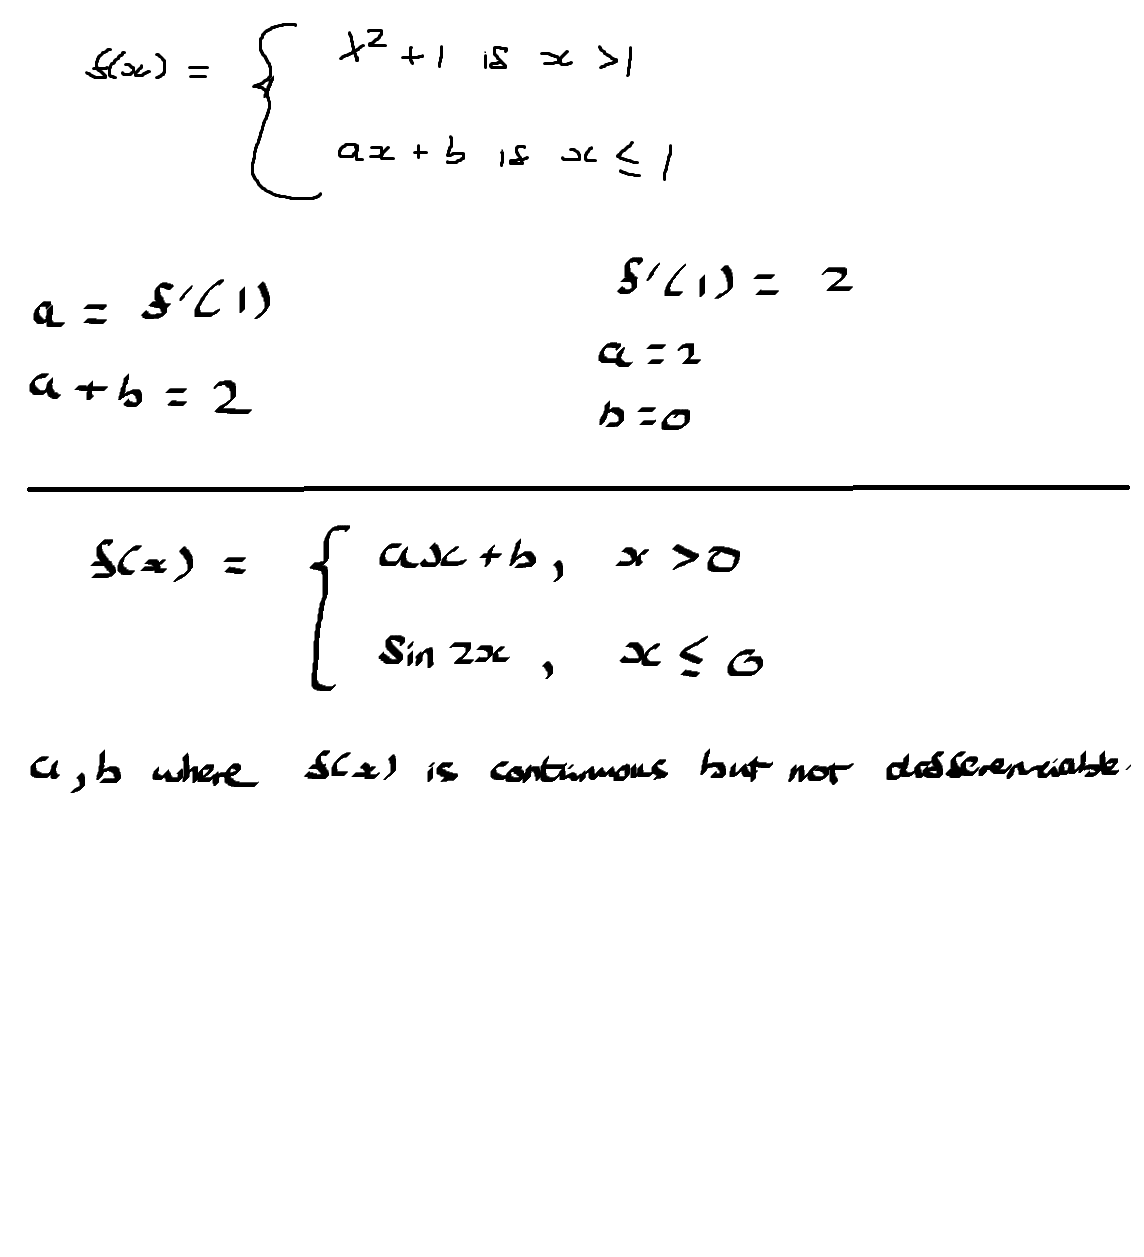 f(x) = { x² + 1 if x > 1
ax + b if x ≤ 1
a = f'(1)
a + b = 2
f'(1) = 2
a = 2
b = 0
f(x) = { ax + b, x > 0
sin 2x, x ≤ 0
a, b where f(x) is continuous but not differenciable.